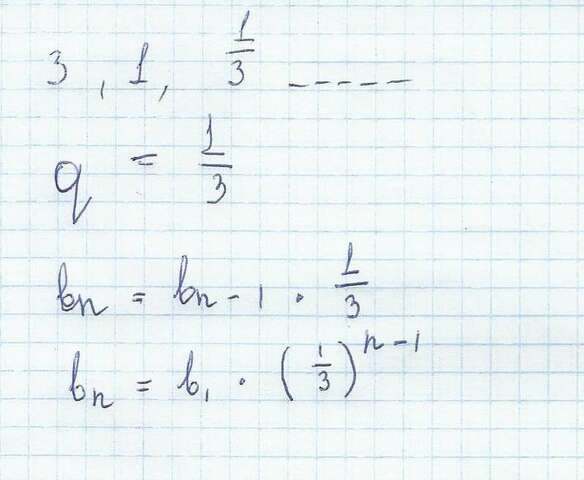 3, 1, 1/3 -----
q = 1/3
bn = bn-1 · 1/3
bn = b1 · (1/3)^n-1